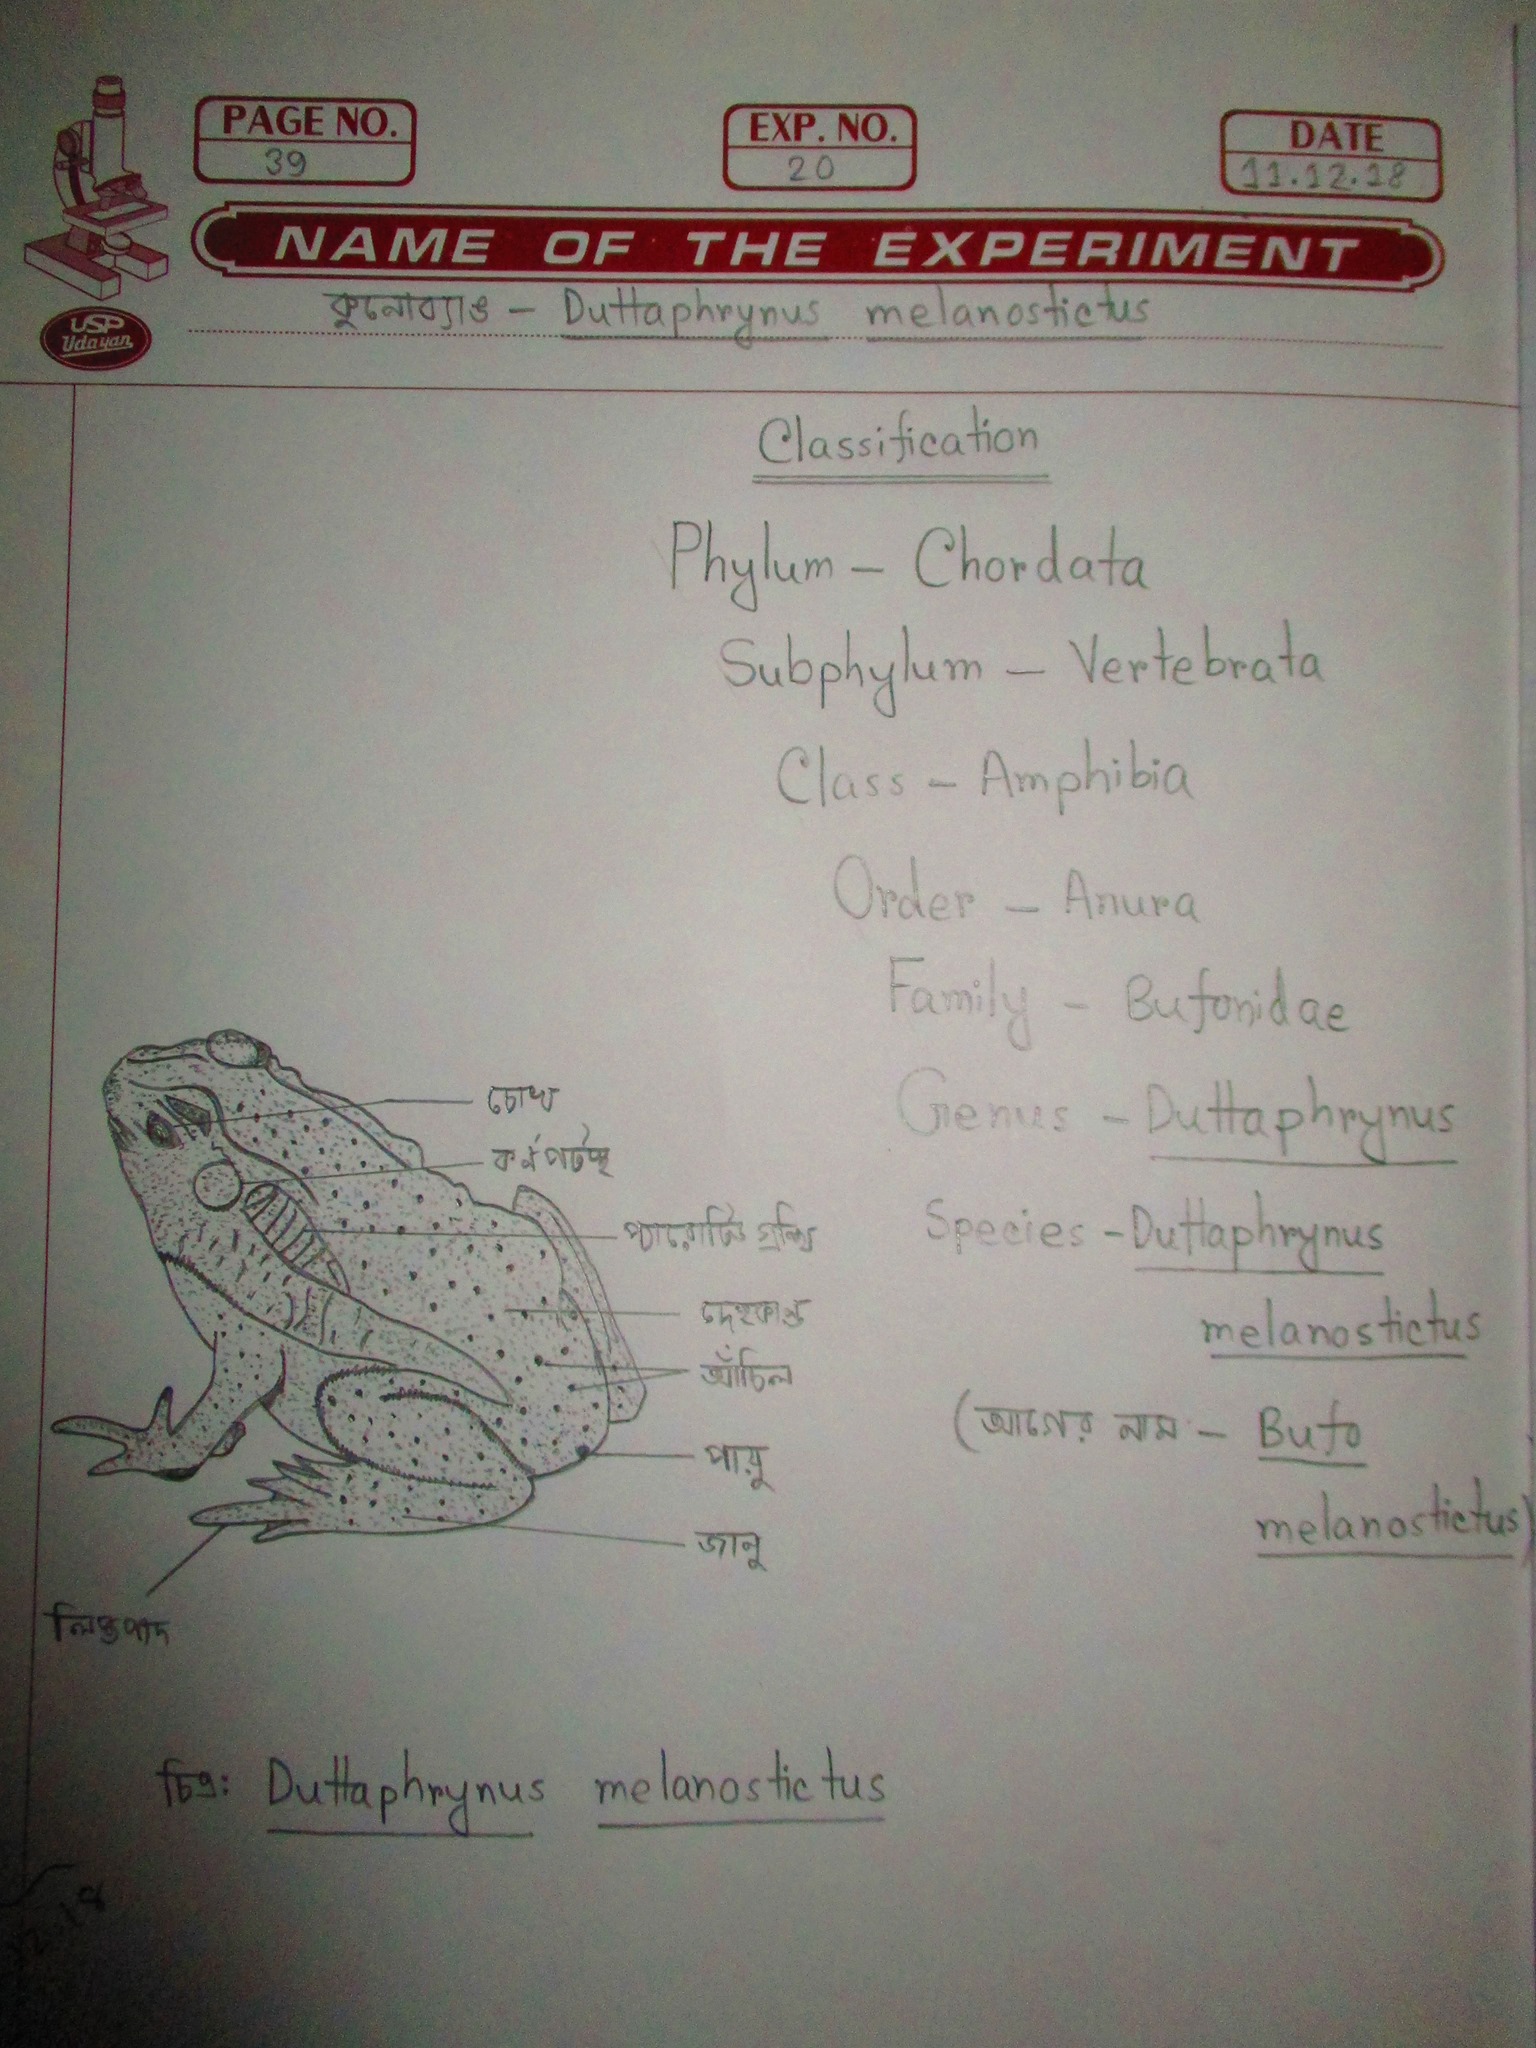 PAGE NO.
39
EXP. NO.
20
DATE
11.12.18
NAME OF THE EXPERIMENT
USP
Udayan
কুনোব্যাঙ – Duttaphrynus melanostictus
Classification
Phylum – Chordata
Subphylum – Vertebrata
Class – Amphibia
Order – Anura
Family – Bufonidae
Genus – Duttaphrynus
Species – Duttaphrynus
melanostictus
(আগের নাম – Bufo
melanostictus)
চোখ
কর্ণপটহ
প্যারোটিড গ্রন্থি
দেহকান্ড
আঁচিল
পায়ু
জানু
লিপ্তপাদ
চিত্র: Duttaphrynus melanostictus